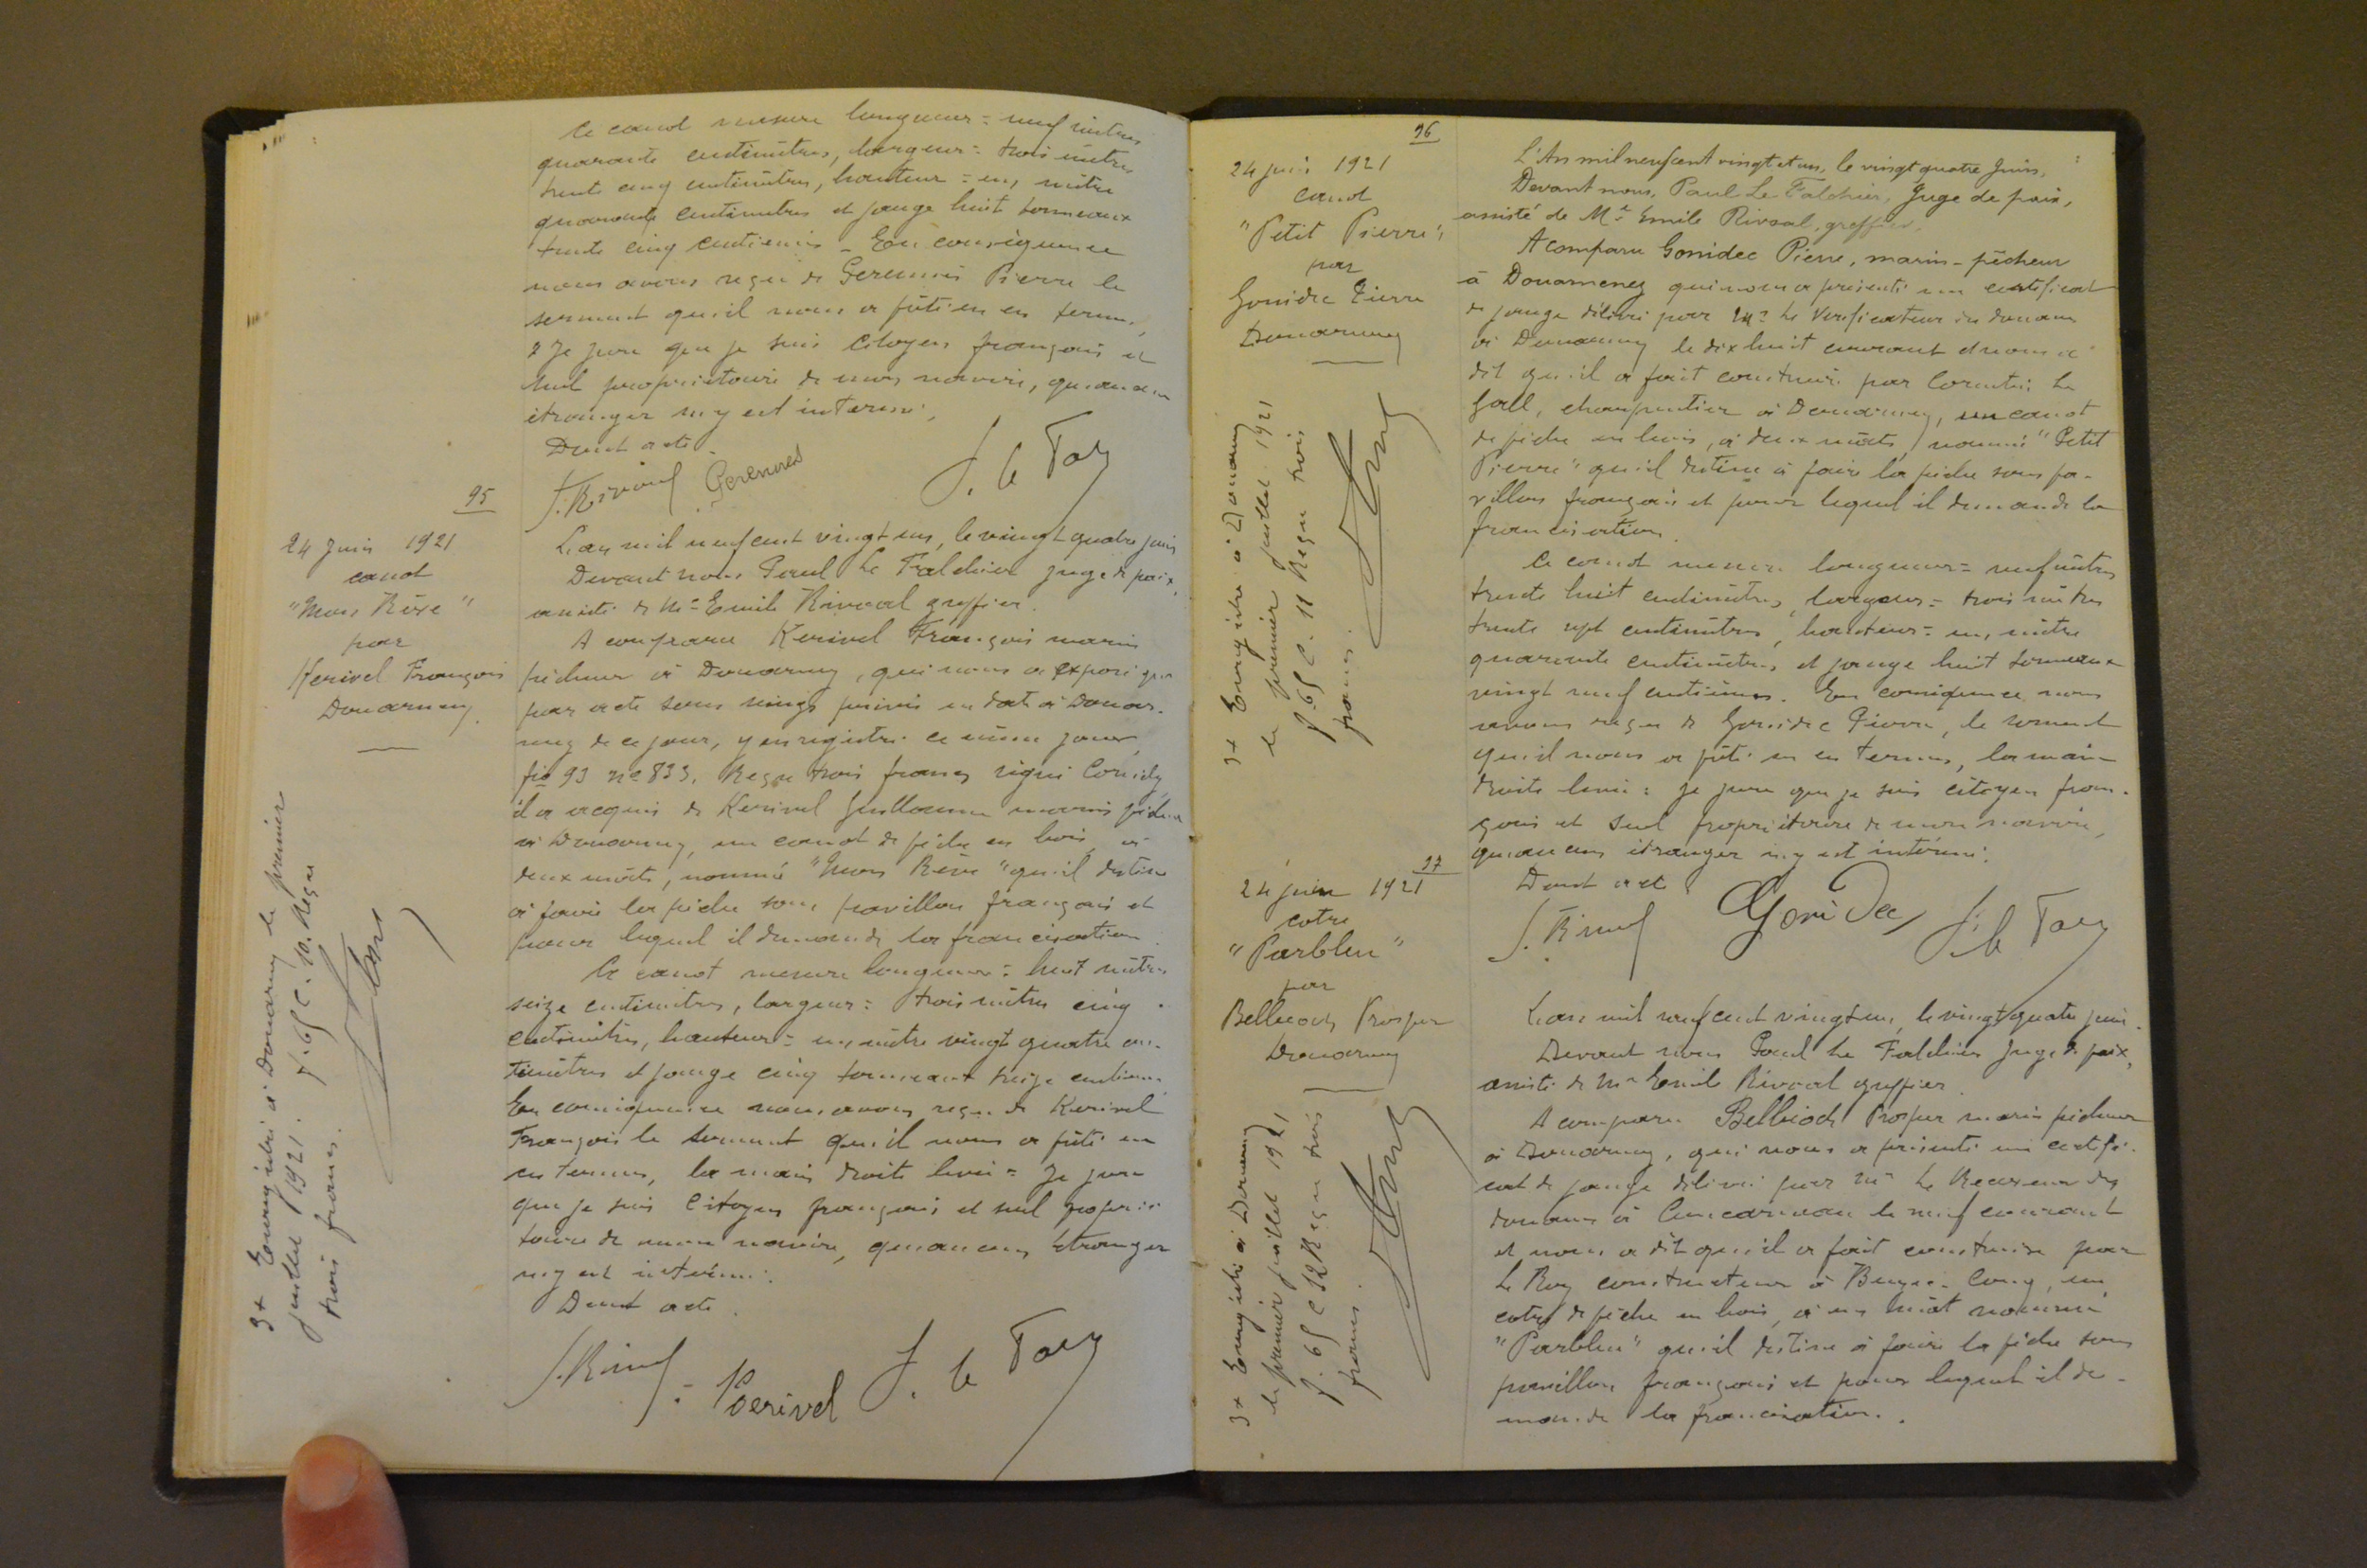 Ce canot mesure longueur = neuf mètres
quarante centimètres, largeur = trois mètres
trente cinq centimètres, hauteur = un mètre
quarante centimètres et jauge huit tonneaux
trente cinq centièmes - En conséquence
nous avons reçu de Gerennes Pierre le
serment qu'il nous a prêté en ces termes,
Je jure que je suis citoyen français et
seul propriétaire de mon navire, qu'aucun
étranger n'y est intéressé,
Dont acte.
Gerennes
95
24 Juin 1921
canot
"Mon Rêve"
par
Kerivel François
Douarnenez
L'an mil neuf cent vingt un, le vingt quatre juin
Devant nous Paul Le Falchier juge de paix,
assisté de Me Emile Rivoal greffier.
A comparu Kerivel François marin
pêcheur à Douarnenez, qui nous a exposé que
par acte sous seings privés en date à Douar-
nenez de ce jour, y enregistré ce même jour
fio 93 no 833. Reçu trois francs signé
il a acquis de Kerivel Guillaume marin pêcheur
à Douarnenez, un canot de pêche en bois, à
deux mâts, nommé "Mon Rêve" qu'il destine
à faire la pêche sous pavillon français et
pour lequel il demande la francisation.
Ce canot mesure longueur = huit mètres
seize centimètres, largeur = trois mètres cinq
centimètres, hauteur = un mètre vingt quatre cen-
timètres et jauge cinq tonneaux seize centièmes.
En conséquence nous avons reçu de Kerivel
François le serment qu'il nous a prêté en
ces termes, la main droite levée = Je jure
que je suis citoyen français et seul proprié-
taire de mon navire, qu'aucun étranger
n'y est intéressé.
Dont acte.
Kerivel
Enregistré à Douarnenez le premier
juillet 1921. f. 65 c. 10. Reçu
trois francs.
96
24 juin 1921
canot
"Petit Pierre"
par
Gonidec Pierre
Douarnenez
L'An mil neuf cent vingt et un, le vingt quatre Juin,
Devant nous, Paul Le Falchier, Juge de paix,
assisté de Me Emile Rivoal, greffier,
A comparu Gonidec Pierre, marin-pêcheur
à Douarnenez qui nous a présenté un certificat
de jauge délivré par Mr Le Vérificateur des douanes
à Douarnenez le dix huit courant et nous a
dit qu'il a fait construire par Corentin Le
Gall, charpentier à Douarnenez, un canot
de pêche en bois, à deux mâts, nommé "Petit
Pierre" qu'il destine à faire la pêche sous pa-
villon français et pour lequel il demande la
francisation.
Ce canot mesure longueur = neuf mètres
trente huit centimètres, largeur = trois mètres
trente sept centimètres, hauteur = un mètre
quarante centimètres et jauge huit tonneaux
vingt neuf centièmes. En conséquence nous
avons reçu de Gonidec Pierre, le serment
qu'il nous a prêté en ces termes, la main
droite levée : Je jure que je suis citoyen fran-
çais et seul propriétaire de mon navire,
qu'aucun étranger n'y est intéressé.
Dont acte
Gonidec
Enregistré à Douarnenez
le premier juillet 1921
f. 65 c. 11 Reçu trois
francs.
97
24 juin 1921
cotre
"Parbleu"
par
Bellieoch Prosper
Douarnenez
L'an mil neuf cent vingt un, le vingt quatre juin.
Devant nous Paul Le Falchier Juge de paix,
assisté de Me Emile Rivoal greffier
A comparu Bellieoch Prosper marin pêcheur
à Douarnenez, qui nous a présenté un certifi-
cat de jauge délivré par Mr Le Receveur des
douanes à Concarneau le neuf courant
et nous a dit qu'il a fait construire par
Le Roy constructeur à Beuzec-Conq, un
cotre de pêche en bois, à un mât nommé
"Parbleu" qu'il destine à faire la pêche sous
pavillon français et pour lequel il de-
mande la francisation.
Enregistré à Douarnenez
le premier juillet 1921
f. 65 c 12 Reçu trois
francs.